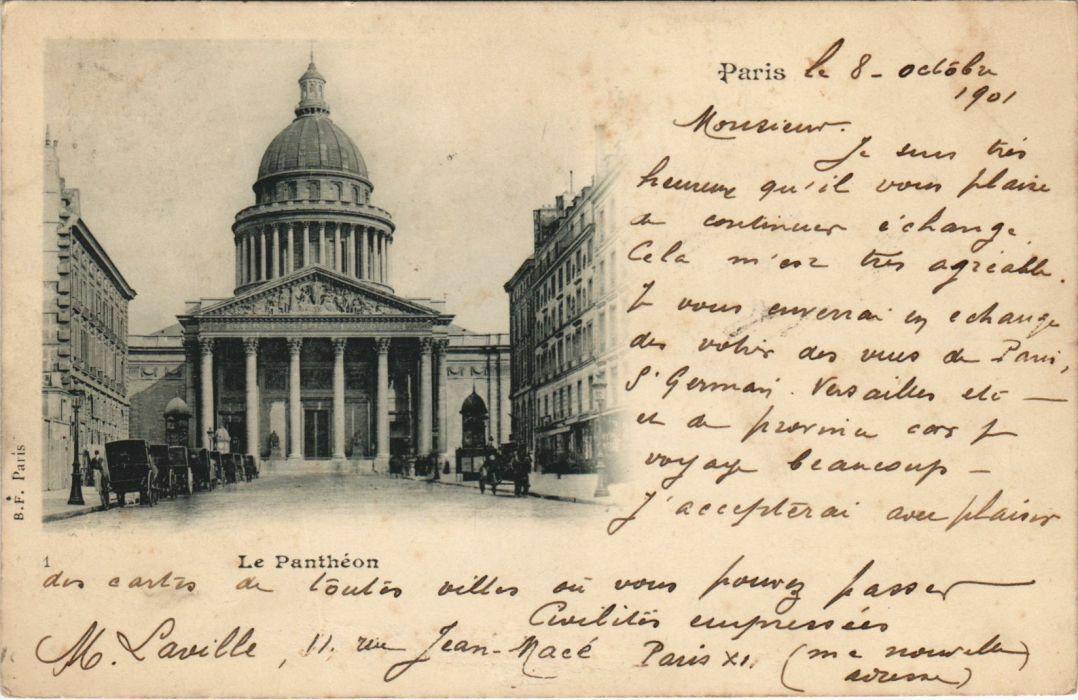 Paris le 8 - octobre
1901
Monsieur.
Je suis très
heureux qu'il vous plaise
de continuer échange.
Cela m'est très agréable.
Je vous enverrai en échange
des vôtres des vues de Paris,
St Germain. Versailles etc —
et de province car je
voyage beaucoup —
J'accepterai avec plaisir
des cartes de toutes villes où vous pouvez passer
Civilités empressées
M. Laville, 11. rue Jean-Macé Paris XI. (ma nouvelle
adresse)
1
Le Panthéon
B.F. Paris